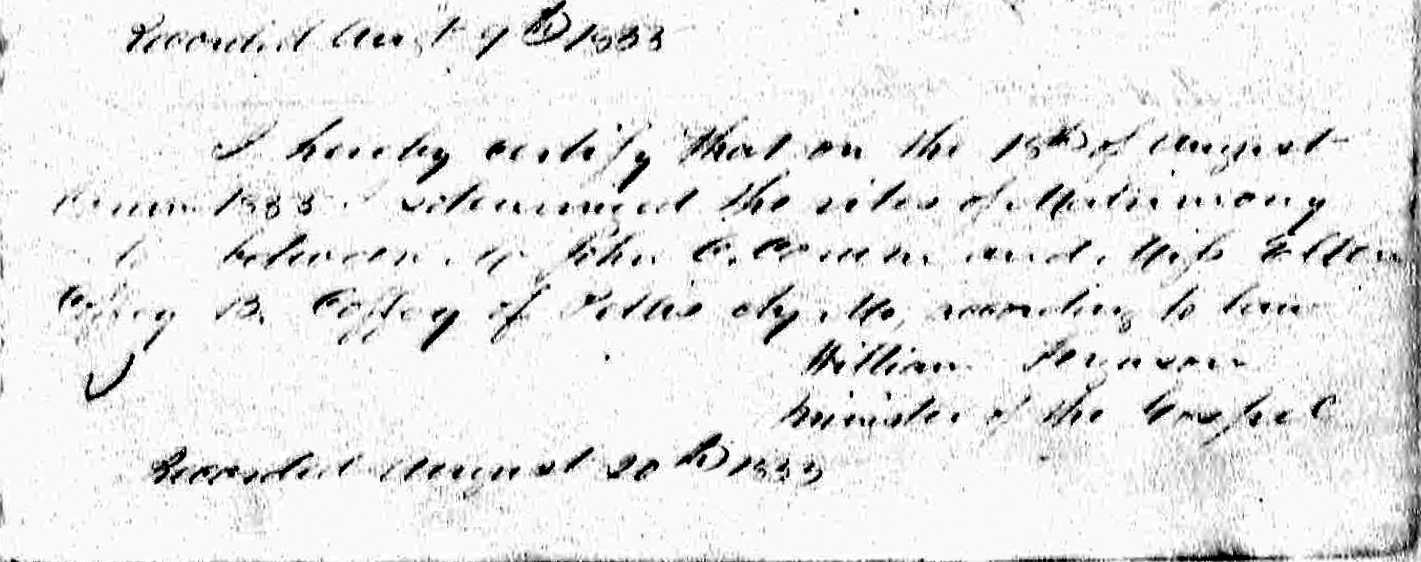 Recorded Augt 9th 1833
I hereby certify that on the 15th of August
1833 I solemnized the rites of Matrimony
between Mr John C. and Miss Ellen
B. Coffey of Pettis cty Mo, according to law
William
Minister of the Gospel
Recorded August 20th 1833